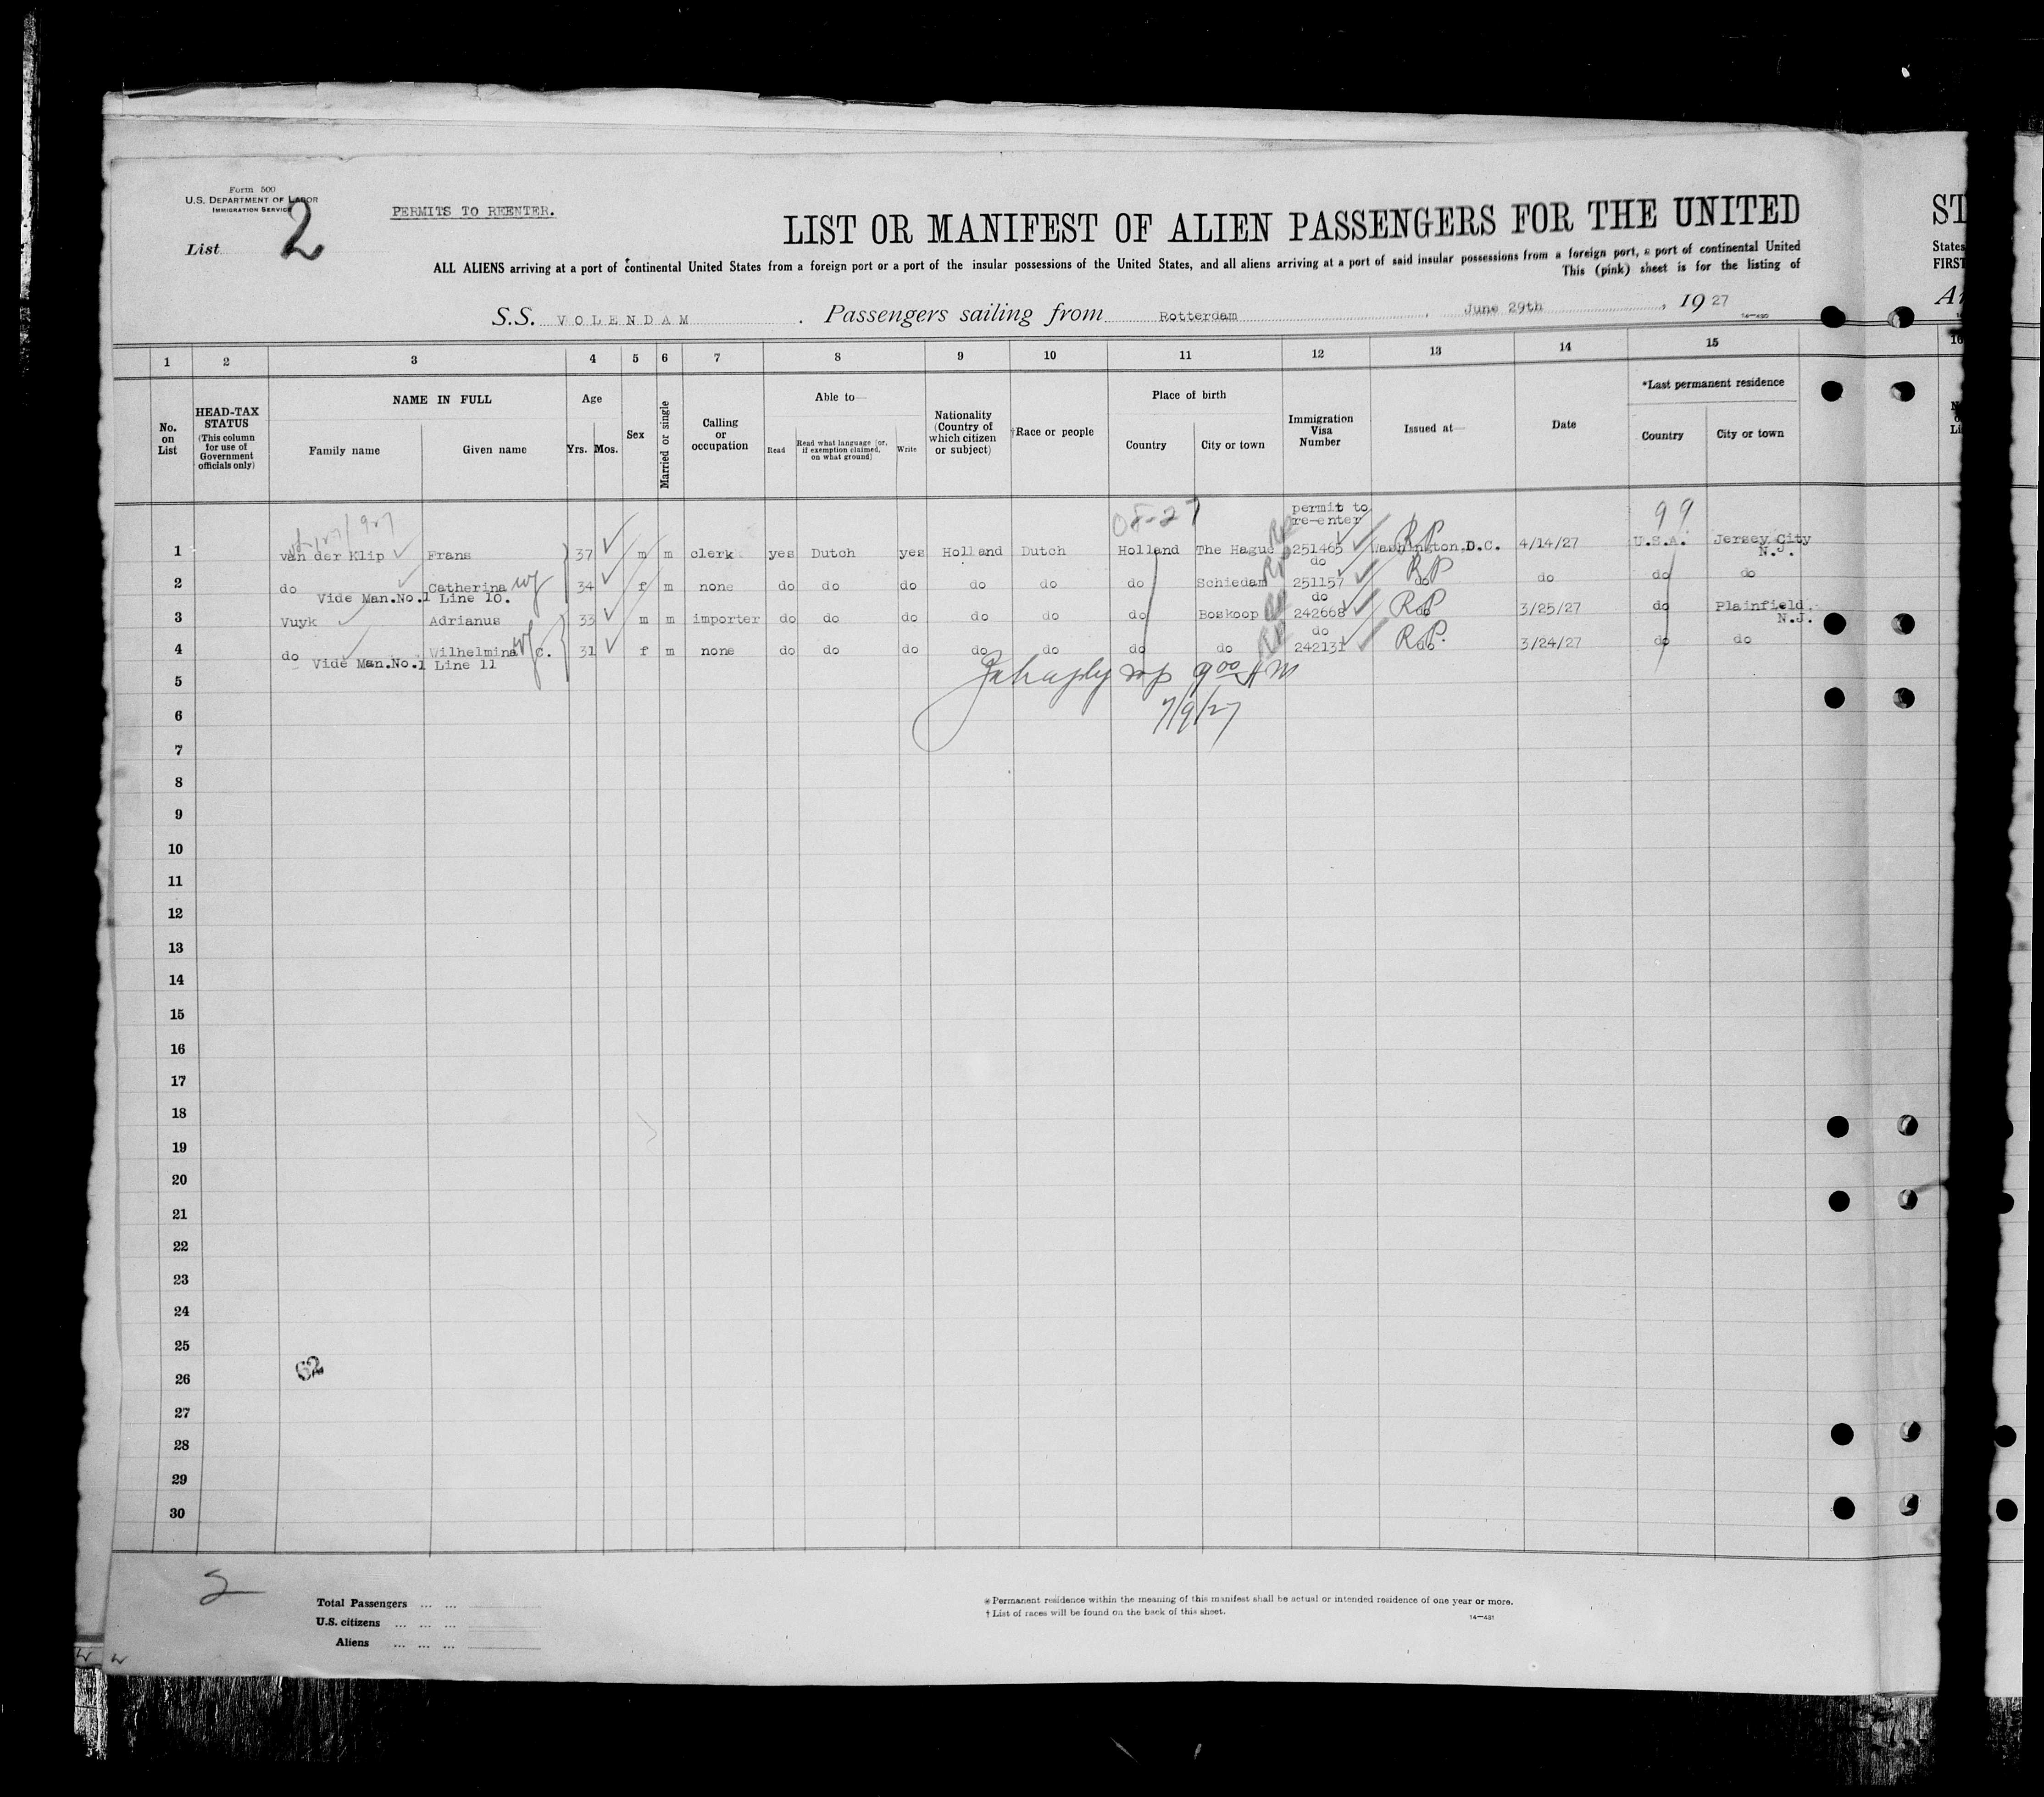 Form 500
U.S. DEPARTMENT OF LABOR
IMMIGRATION SERVICE
List 2
PERMITS TO REENTER.
LIST OR MANIFEST OF ALIEN PASSENGERS FOR THE UNITED
ST
ALL ALIENS arriving at a port of continental United States from a foreign port or a port of the insular possessions of the United States, and all aliens arriving at a port of said insular possessions from a foreign port, a port of continental United
States
This (pink) sheet is for the listing of
FIRST
S.S. VOLENDAM . Passengers sailing from Rotterdam , June 29th , 19 27
14—430
1 2 3 4 5 6 7 8 9 10 11 12 13 14 15
No. on List
HEAD-TAX STATUS (This column for use of Government officials only)
NAME IN FULL
Family name Given name
Age
Yrs. Mos.
Sex
Married or single
Calling or occupation
Able to—
Read Read what language [or, if exemption claimed, on what ground] Write
Nationality (Country of which citizen or subject)
†Race or people
Place of birth
Country City or town
Immigration Visa Number
Issued at—
Date
*Last permanent residence
Country City or town
08-27 permit to re-enter 99
1 van der Klip Frans 37 m m clerk yes Dutch yes Holland Dutch Holland The Hague 251465 RP Washington D.C. 4/14/27 U.S.A. Jersey City N.J.
2 do Catherina wf 34 f m none do do do do do do Schiedam do 251157 RP do do do do
Vide Man.No.1 Line 10.
3 Vuyk Adrianus 33 m m importer do do do do do do Boskoop do 242668 RP do 3/25/27 do Plainfield N.J.
4 do Wilhelmina C. wf 31 f m none do do do do do do do do 242131 RP. do 3/24/27 do do
Vide Man.No.1 Line 11
5 9 00 AM
6 7/9/27
7
8
9
10
11
12
13
14
15
16
17
18
19
20
21
22
23
24
25
26 62
27
28
29
30
2
Total Passengers ... ...
U.S. citizens ... ... ...
Aliens ... ... ...
* Permanent residence within the meaning of this manifest shall be actual or intended residence of one year or more.
† List of races will be found on the back of this sheet.
14—431